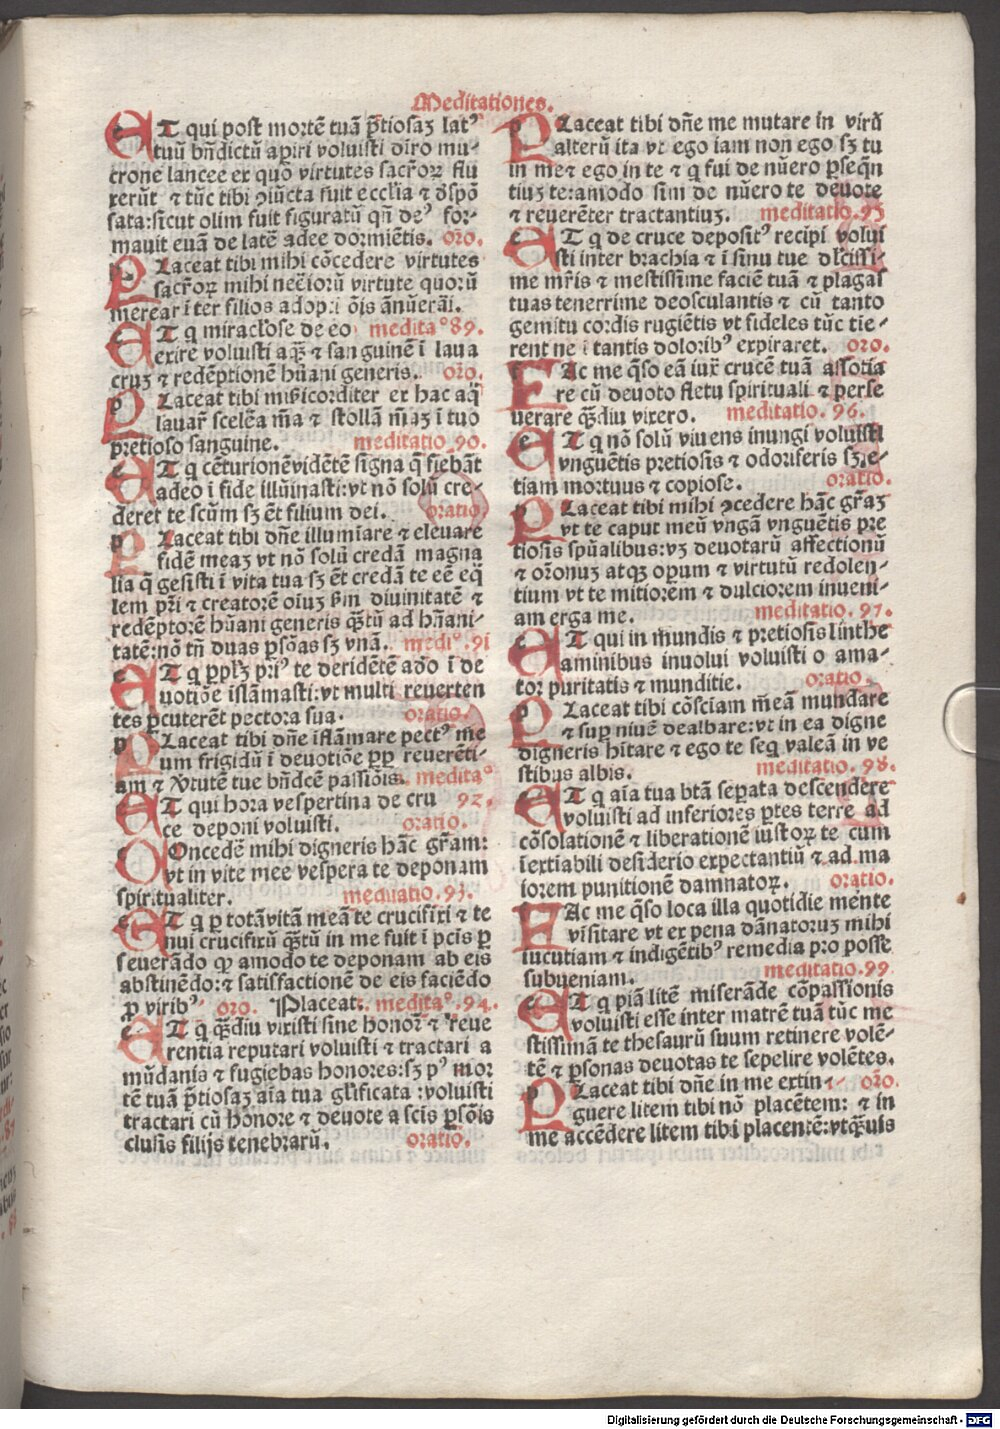 Meditationes.
ET qui post mortē tuā p̄tiosaꝫ latꝰ
tuū bn̄dictū aperiri voluisti diro mu-
crone lancee ex quo virtutes sacr̄oꝝ flu
xerūt ⁊ tūc tibi ꝯiūcta fuit eccl'ia ⁊ dispō
sata: sicut olim fuit figuratū qn̄ deꝰ for-
mauit euā de latē adee dormiētis. oro.
PLaceat tibi mihi cōcedere virtutes
sacr̄oꝝ mihi nec̄iorū virtute quorū
merear īter filios adopt. oīs ānūerāi.
ET q miraclose de eo medita°89.
exire voluisti aq̄ȝ ⁊ sanguinē ī laua
cruꝫ ⁊ redēptionē hūani generis. oro.
PLaceat tibi mis̄icorditer ex hac aq̄
lauar̄ scelēa m̄a ⁊ stollā m̄aꝫ ī tuo
pretioso sanguine. meditatio 90.
ET q cēturionē vidētē signa q̄ fiebāt
adeo ī fide illūinasti: vt nō solū cre-
deret te scūm sꝫ ēt filium dei. oratio
PLaceat tibi dn̄e illumīare ⁊ eleuare
fidē meaꝫ vt nō solū credā magna
lia q̄ gesisti ī vita tua sꝫ ēt credā te eē eq̄
lem pr̄i ⁊ creatorē oīuꝫ s̄m diuinitatē ⁊
redēptorē hūani generis q̄ȝtū ad hn̄ani-
tatē: nō tn̄ duas ꝑsōas sꝫ vnā. medi°.91
ET q pplꝫ priꝰ te deridētē adō ī de
uotiōe īslāmasti: vt multi reuerten
tes ꝑcuterēt pectora sua. oratio.
PLaceat tibi dn̄e īflāmare pectꝰ me
um frigidū ī deuotiōe ꝓp reuerēti-
am ⁊ v̄tutē tue bn̄dcē passiōis. medita°
ET qui hora vespertina de cru 92.
ce deponi voluisti. oratio.
COncedē mihi digneris hāc gr̄am:
vt in vite mee vespera te deponam
spiritualiter. meditatio.93.
ET q ꝑ totā vitā meā te crucifixi ⁊ te
nui crucifixū q̄ȝtū in me fuit ī pcīs ꝑ
seuerādo ꝙ amodo te deponam ab eis
abstinēdo: ⁊ satisfactionē de eis faciēdo
ꝓ viribꝰ oro. Placeat. medita°.94.
ET q q̄ȝdiu vixisti sine honor̄ ⁊ reue
rentia reputari voluisti ⁊ tractari a
mūdanis ⁊ fugiebas honores: sꝫ pꝰ mor
tē tuā p̄tiosaꝫ aīa tua gl'ificata: voluisti
tractari cū honore ⁊ deuote a scīs ꝑsōis
clusis filijs tenebrarū. oratio.
PLaceat tibi dn̄e me mutare in virū
alterū ita vt ego iam non ego sꝫ tu
in me ⁊ ego in te ⁊ q fui de nūero ꝑseqn̄
tiuꝫ te: amodo sim de nūero te deuote
⁊ reuerēter tractantiuꝫ. meditatio.95
ET q de cruce depositꝰ recipi volui
sti inter brachia ⁊ ī sinu tue dl'cissi-
me mr̄is ⁊ mestissime faciē tuā ⁊ plagas
tuas tenerrime deosculantis ⁊ cū tanto
gemitu cordis rugiētis vt fideles tūc tīe-
rent ne ī tantis doloribꝰ expiraret. oro.
FAc me q̄so eā iux̄ crucē tuā assotia
re cū deuoto fletu spirituali ⁊ perse
uerare q̄ȝdiu vixero. meditatio. 96.
ET q nō solū viuens inungi voluisti
vnguētis pretiosis ⁊ odoriferis sꝫ e-
tiam mortuus ⁊ copiose. oratio.
PLaceat tibi mihi ꝯcedere hāc gr̄aꝫ
vt te caput meū vngā vnguētis pre
tiosis spūalibus: vꝫ deuotarū affectionū
⁊ or̄onuꝫ atqꝫ oꝑum ⁊ virtutū redolen-
tium vt te mitiorēm ⁊ dulciorem inueni-
am erga me. meditatio. 97.
ET qui in mundis ⁊ pretiosis linthe
aminibus inuolui voluisti o ama-
tor puritatis ⁊ munditie. oratio.
PLaceat tibi cōsciam m̄eā mundare
⁊ suꝑ niuē dealbare: vt in ea digne
digneris hītare ⁊ ego te seq̄ valeā in ve
stibus albis. meditatio. 98.
ET q aīa tua btā seꝑata descendere
voluisti ad inferiores ꝑtes terre ad
cōsolationē ⁊ liberationē iustoꝝ te cum
īextiabili desiderio expectantiū ⁊ ad ma
iorem punitionē damnatoꝝ. oratio.
FAc me q̄so loca illa quotidie mente
visitare vt ex pena dānatoruꝫ mihi
iucutiam ⁊ indigētibꝰ remedia pro posse
subueniam. meditatio.99
ET q piā litē miserāde cōpassionis
voluisti esse inter matrē tuā tūc me
stissimā te thesaurū suum retinere volē-
tē ⁊ ꝑsonas deuotas te sepelire volētes.
PLaceat tibi dn̄e in me extin- oro.
guere litem tibi nō placētem: ⁊ in
me accēdere litem tibi placentē: vt q̄ȝuis
Digitalisierung gefördert durch die Deutsche Forschungsgemeinschaft - DFG